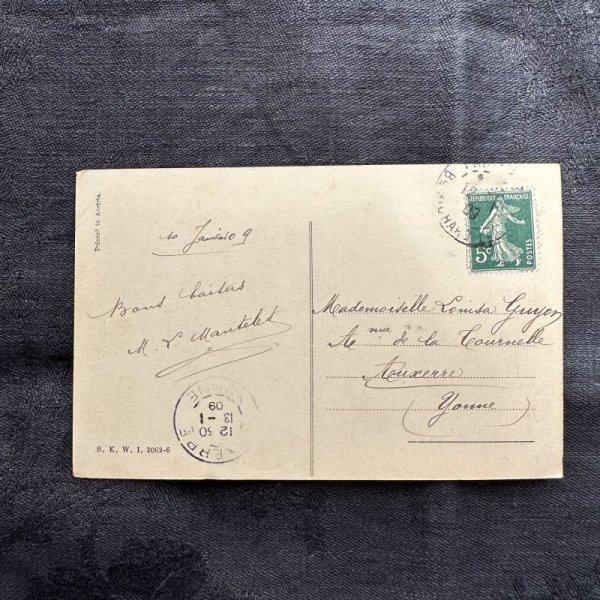 Printed in Austria.
REPUBLIQUE FRANÇAISE
5c
POSTES
10 Janvier 09
Bons baisers
M. L. Mantelet
Mademoiselle Louisa Guyon
rue de la Tournelle
Auxerre
Yonne
YONNE
09
13 - 1
12 30
XERRE
B. K. W. I. 2063-6